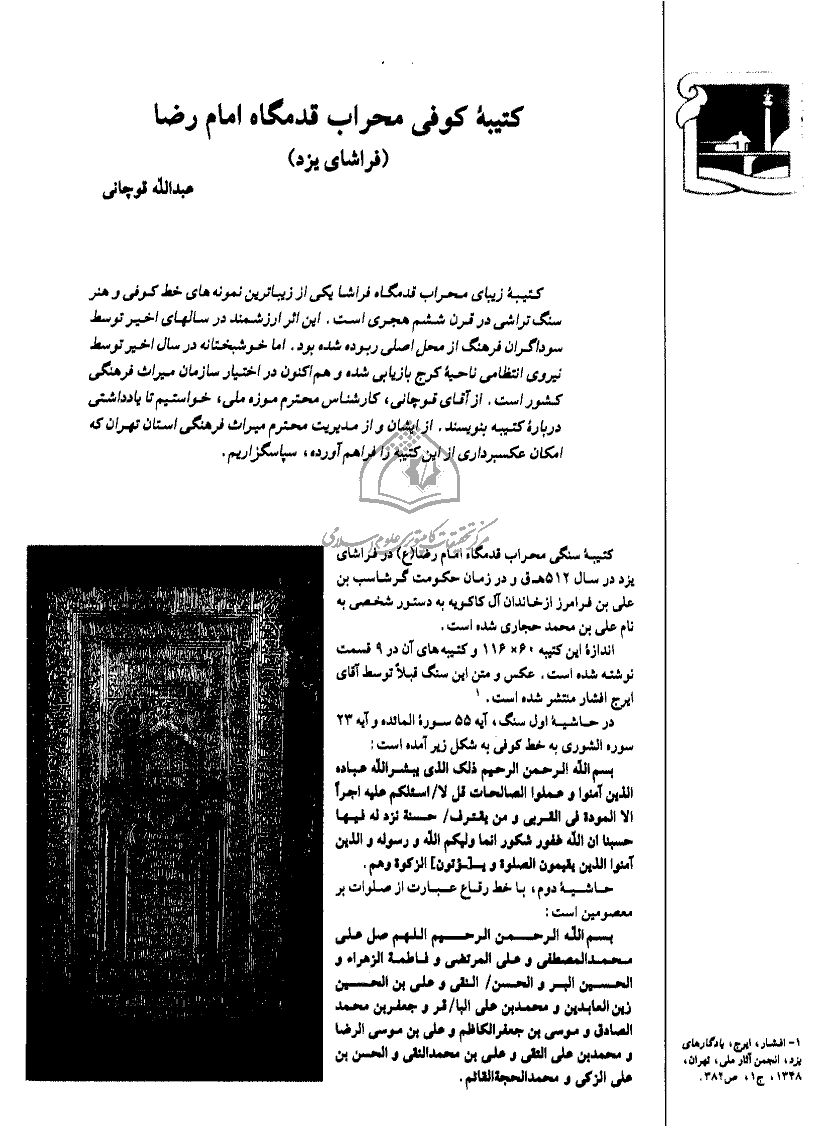 کتیبهٔ کوفی محراب قدمگاه امام رضا
(فراشای یزد)
عبدالله قوچانی
کتیبهٔ زیبای محراب قدمگاه فراشا یکی از زیباترین نمونه های خط کوفی و هنر
سنگ تراشی در قرن ششم هجری است. این اثر ارزشمند در سالهای اخیر توسط
سوداگران فرهنگ از محل اصلی ربوده شده بود. اما خوشبختانه در سال اخیر توسط
نیروی انتظامی ناحیهٔ کرج بازیابی شده و هم اکنون در اختیار سازمان میراث فرهنگی
کشور است. از آقای قوچانی، کارشناس محترم موزه ملی، خواستیم تا یادداشتی
دربارهٔ کتیبه بنویسند. از ایشان و از مدیریت محترم میراث فرهنگی استان تهران که
امکان عکسبرداری از این کتیبه را فراهم آورده، سپاسگزاریم.
مرکز تحقیقات کامپیوتری علوم اسلامی
کتیبهٔ سنگی محراب قدمگاه امام رضا(ع) در فراشای
یزد در سال ۵۱۲هـ.ق و در زمان حکومت گرشاسب بن
علی بن فرامرز از خاندان آل کاکویه به دستور شخصی به
نام علی بن محمد حجاری شده است.
اندازهٔ این کتیبه ۶۰×۱۱۶ و کتیبه های آن در ۹ قسمت
نوشته شده است. عکس و متن این سنگ قبلاً توسط آقای
ایرج افشار منتشر شده است.۱
در حاشیهٔ اول سنگ، آیه ۵۵ سورهٔ المائده و آیه ۲۳
سوره الشوری به خط کوفی به شکل زیر آمده است:
بسم الله الرحمن الرحیم ذلک الذی یبشرالله عباده
الذین آمنوا و عملوا الصالحات قل لا/ اسئلکم علیه اجراً
الا المودة فی القربی و من یقترف/ حسنة نزد له فیها
حسنا ان الله غفور شکور انما ولیکم الله و رسوله و الذین
آمنوا الذین یقیمون الصلوة و یـ[ـؤتون] الزکوة وهم.
حاشیهٔ دوم، با خط رقاع عبارت از صلوات بر
معصومین است:
بسم الله الرحمن الرحیم اللهم صل علی
محمدالمصطفی و علی المرتضی و فاطمة الزهراء و
الحسین البر و الحسن/ النقی و علی بن الحسین
زین العابدین و محمدبن علی البا/قر و جعفربن محمد
الصادق و موسی بن جعفرالکاظم و علی بن موسی الرضا
و محمدبن علی التقی و علی بن محمدالنقی و الحسن بن
علی الزکی و محمدالحجةالقائم.
۱- افشار، ایرج، یادگارهای
یزد، انجمن آثار ملی، تهران،
۱۳۴۸، ج۱، ص۳۸۲.